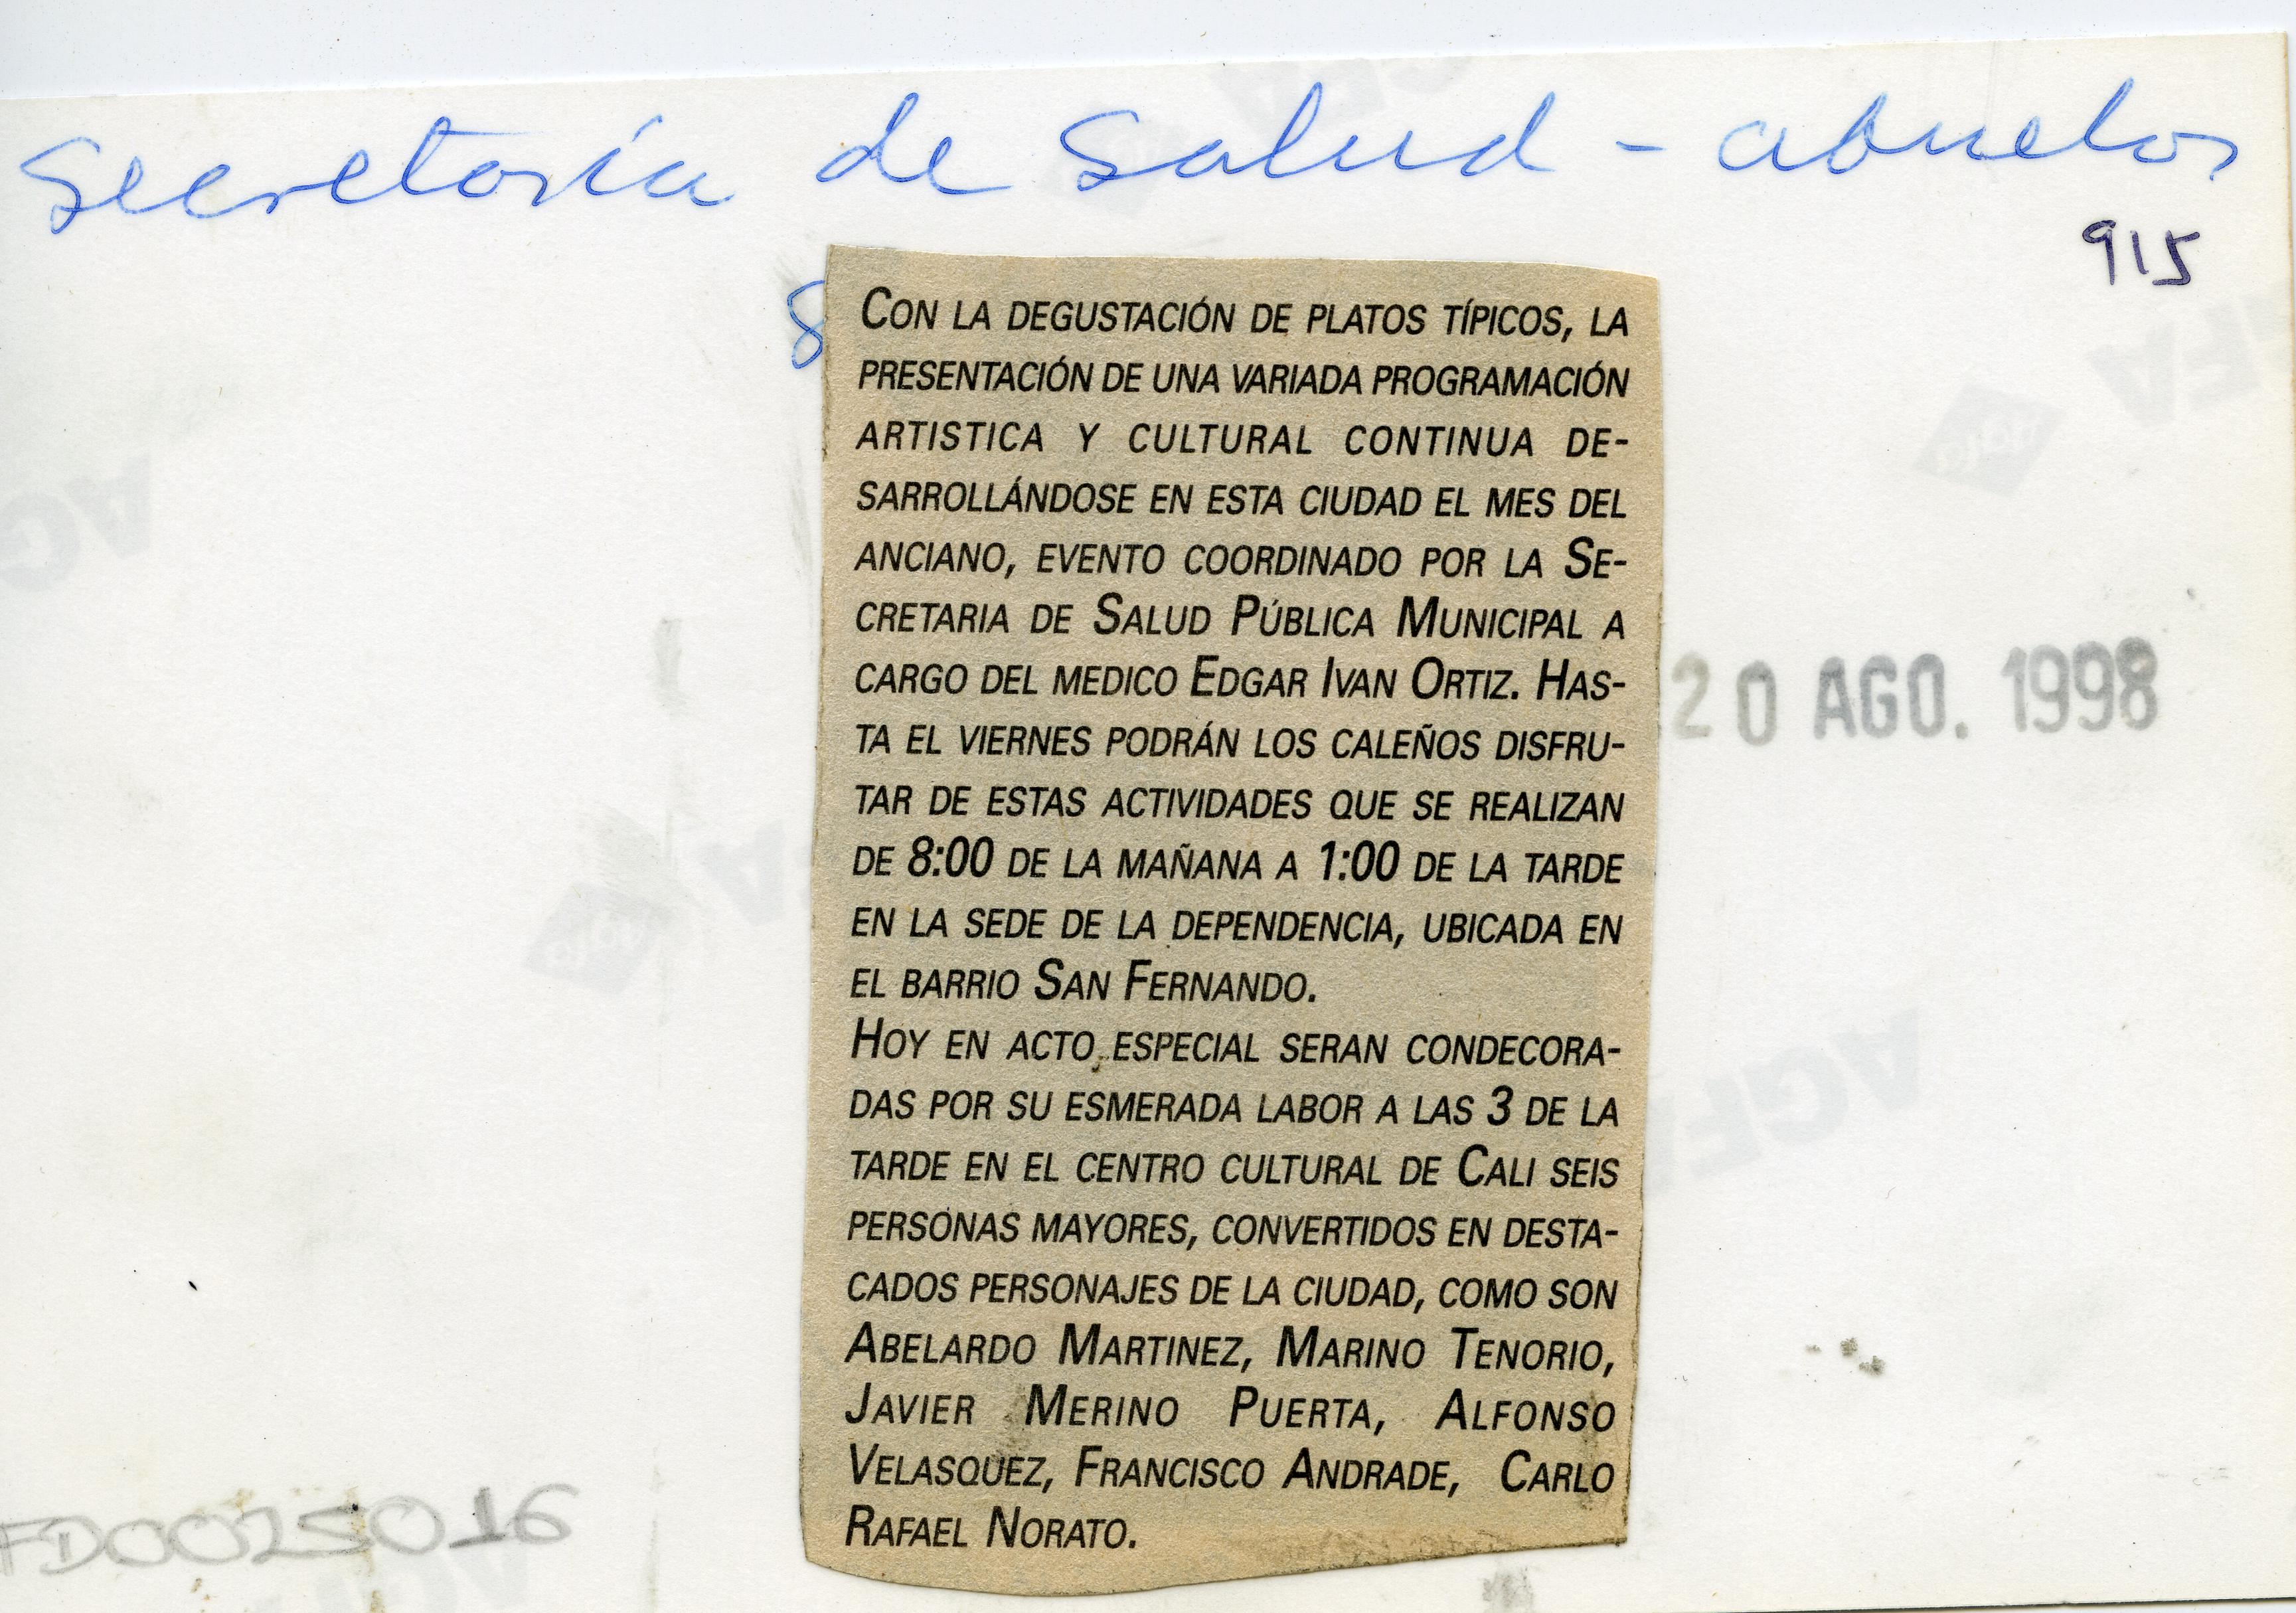 Secretaría de Salud - abuelos
915
8
CON LA DEGUSTACIÓN DE PLATOS TÍPICOS, LA
PRESENTACIÓN DE UNA VARIADA PROGRAMACIÓN
ARTISTICA Y CULTURAL CONTINUA DE-
SARROLLÁNDOSE EN ESTA CIUDAD EL MES DEL
ANCIANO, EVENTO COORDINADO POR LA SE-
CRETARIA DE SALUD PÚBLICA MUNICIPAL A
CARGO DEL MEDICO EDGAR IVAN ORTIZ. HAS-
TA EL VIERNES PODRÁN LOS CALEÑOS DISFRU-
TAR DE ESTAS ACTIVIDADES QUE SE REALIZAN
DE 8:00 DE LA MAÑANA A 1:00 DE LA TARDE
EN LA SEDE DE LA DEPENDENCIA, UBICADA EN
EL BARRIO SAN FERNANDO.
HOY EN ACTO ESPECIAL SERAN CONDECORA-
DAS POR SU ESMERADA LABOR A LAS 3 DE LA
TARDE EN EL CENTRO CULTURAL DE CALI SEIS
PERSONAS MAYORES, CONVERTIDOS EN DESTA-
CADOS PERSONAJES DE LA CIUDAD, COMO SON
ABELARDO MARTINEZ, MARINO TENORIO,
JAVIER MERINO PUERTA, ALFONSO
VELASQUEZ, FRANCISCO ANDRADE, CARLO
RAFAEL NORATO.
20 AGO. 1998
AGFA